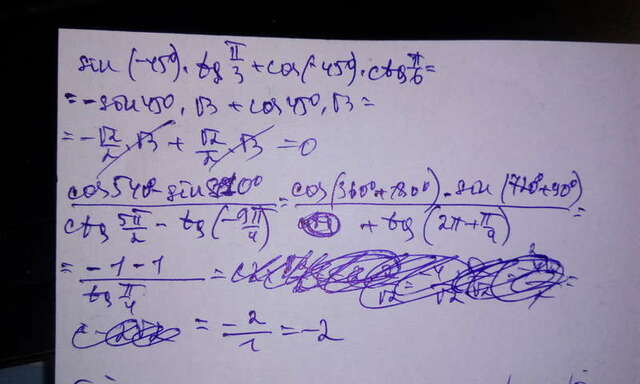 sin(-45°)·tg π/3 + cos(-45°)·ctg π/6 =
= -sin45°·√3 + cos45°·√3 =
= -√2/2·√3 + √2/2·√3 = 0
(cos540° - sin810°)/(ctg 5π/2 - tg(-9π/4)) = (cos(360°+180°) - sin(720°+90°))/( + tg(2π+π/4)) =
= (-1-1)/(tg π/4) =
= -2/1 = -2